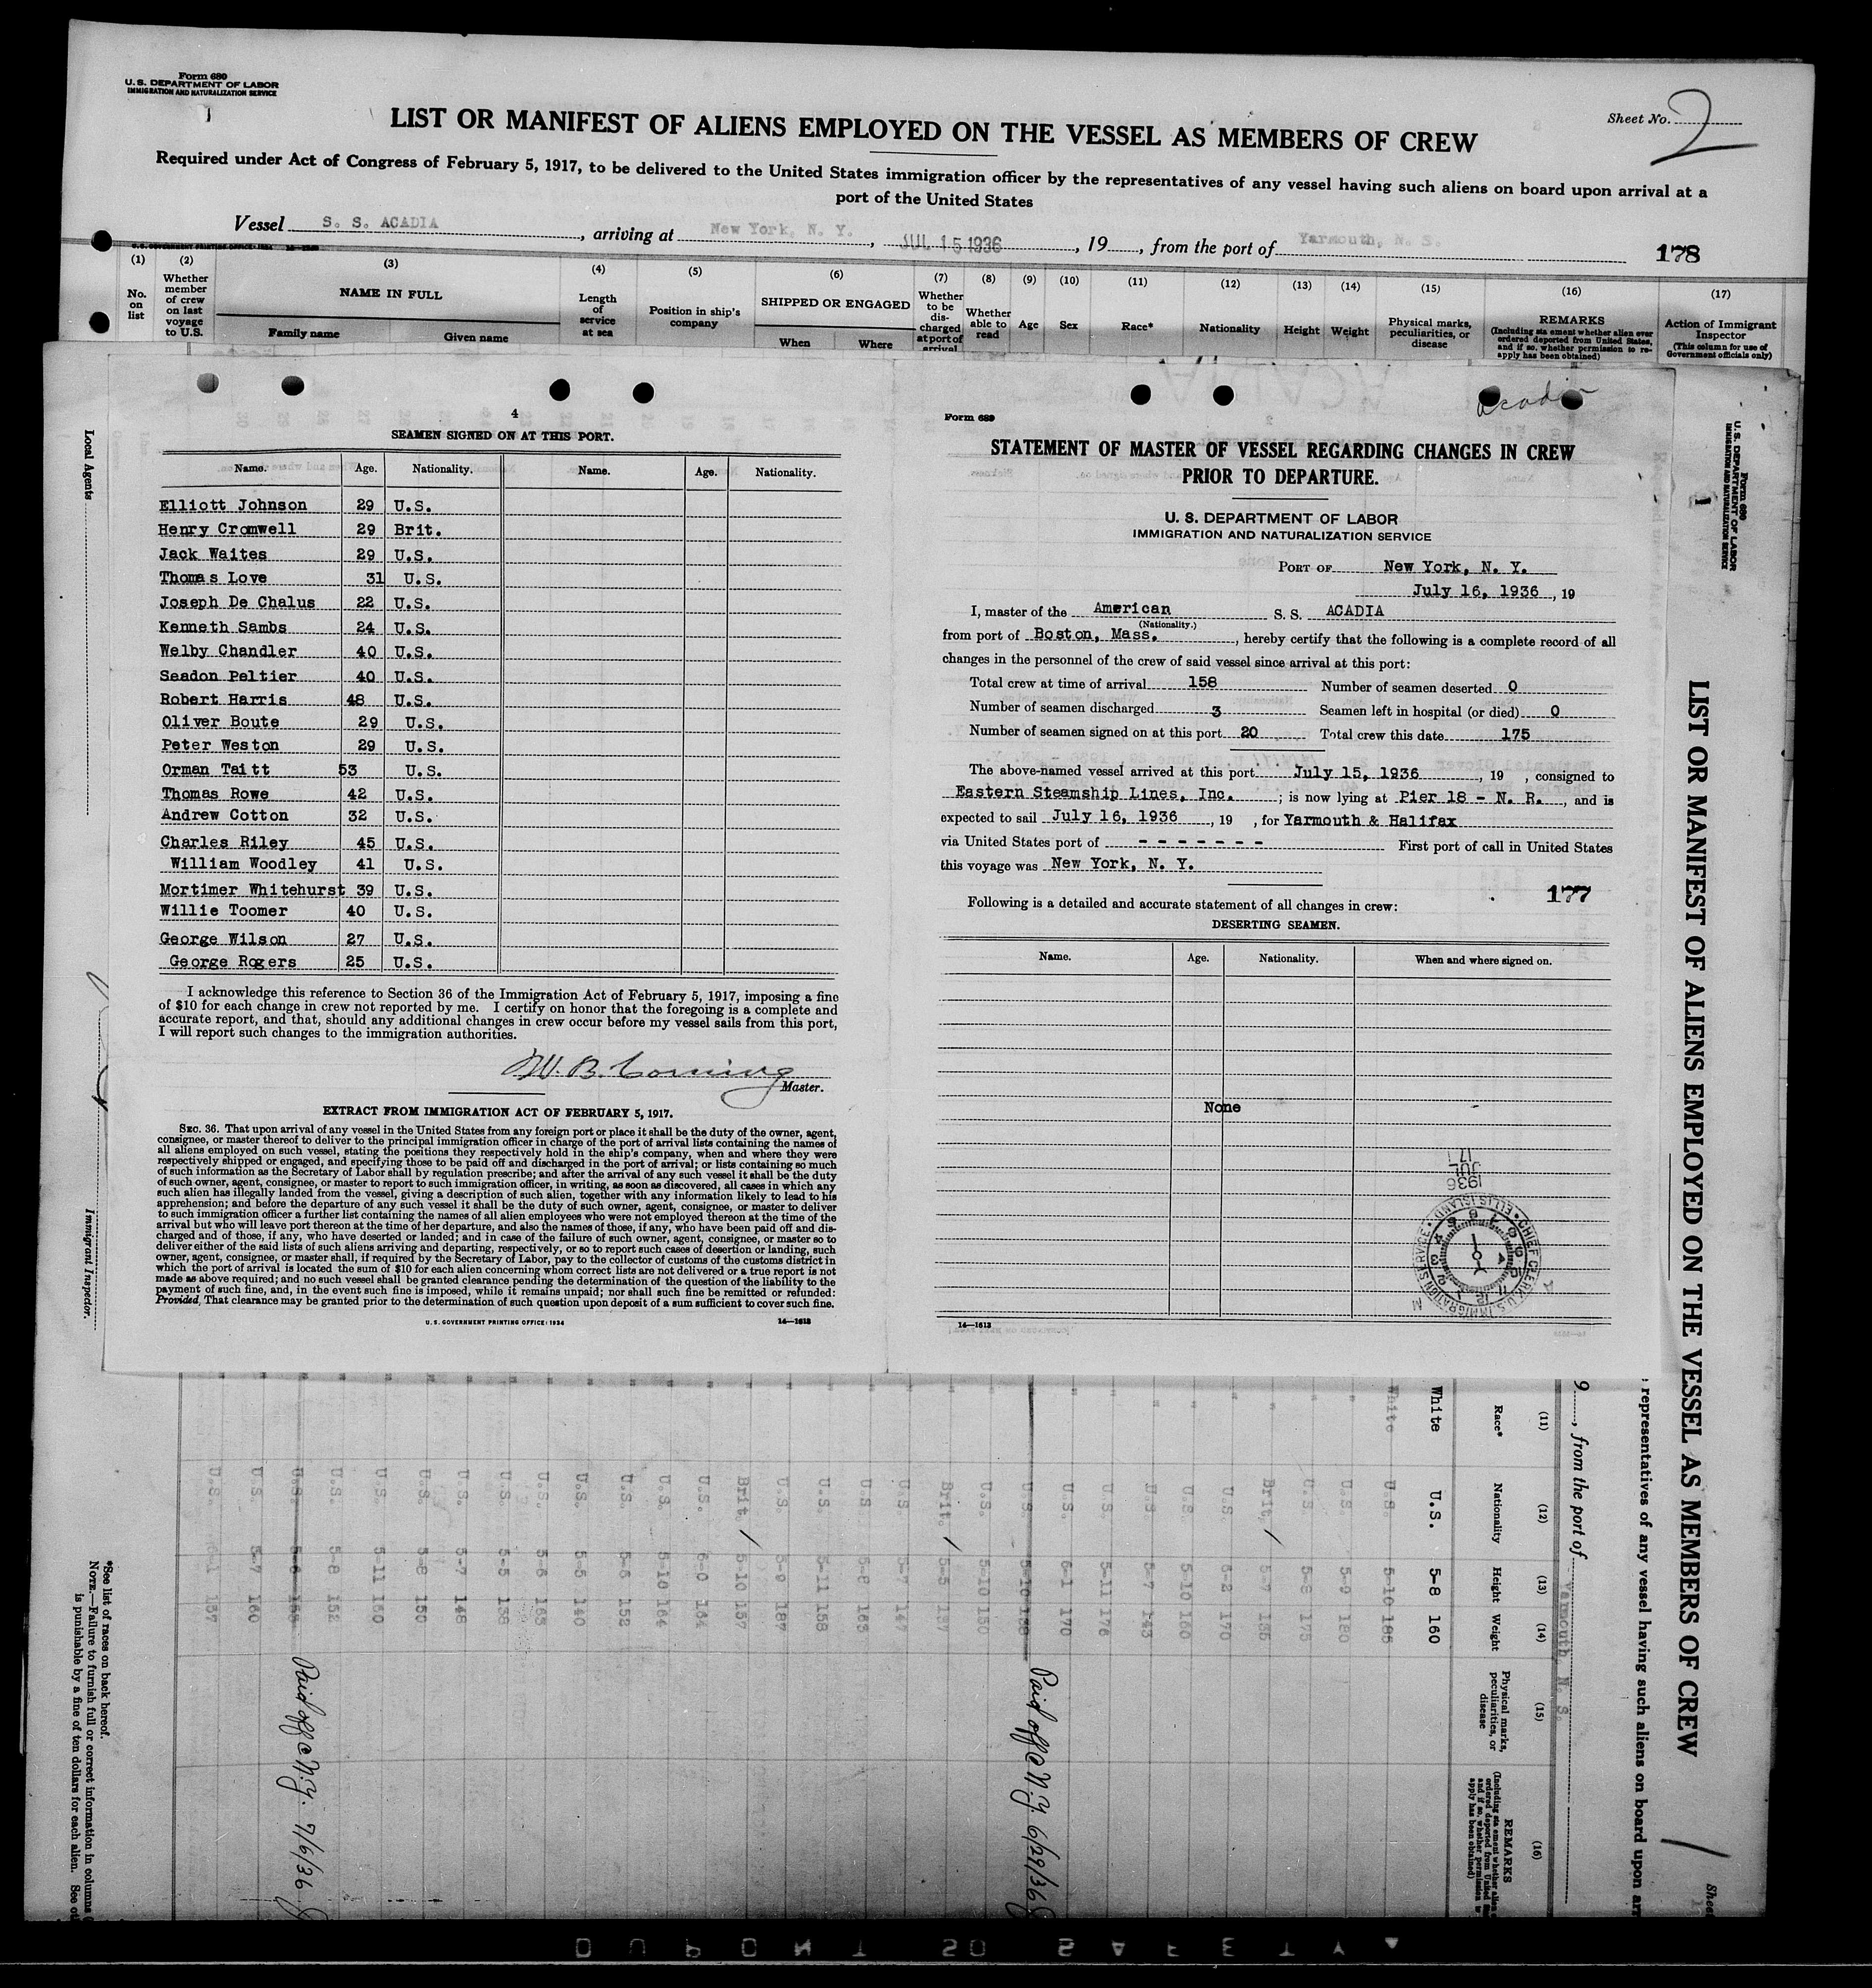 Form 680
U. S. DEPARTMENT OF LABOR
IMMIGRATION AND NATURALIZATION SERVICE
Sheet No. 2
LIST OR MANIFEST OF ALIENS EMPLOYED ON THE VESSEL AS MEMBERS OF CREW
Required under Act of Congress of February 5, 1917, to be delivered to the United States immigration officer by the representatives of any vessel having such aliens on board upon arrival at a
port of the United States
Vessel S. S. ACADIA, arriving at New York, N. Y., JUL 15 1936, 19, from the port of Yarmouth, N. S.
178
(1) (2) (3) (4) (5) (6) (7) (8) (9) (10) (11) (12) (13) (14) (15) (16) (17)
No. on list
Whether member of crew on last voyage to U.S.
NAME IN FULL
Family name Given name
Length of service at sea
Position in ship's company
SHIPPED OR ENGAGED
When Where
Whether to be discharged at port of arrival
Whether able to read
Age
Sex
Race*
Nationality
Height
Weight
Physical marks, peculiarities, or disease
REMARKS
(Including statement whether alien ever ordered deported from United States, and if so, whether permission to reapply has been obtained)
Action of Immigrant Inspector
(This column for use of Government officials only)
4
SEAMEN SIGNED ON AT THIS PORT.
Name. Age. Nationality. Name. Age. Nationality.
Elliott Johnson 29 U.S.
Henry Cromwell 29 Brit.
Jack Waites 29 U.S.
Thomas Love 31 U.S.
Joseph De Chalus 22 U.S.
Kenneth Sambs 24 U.S.
Welby Chandler 40 U.S.
Seadon Peltier 40 U.S.
Robert Harris 48 U.S.
Oliver Boute 29 U.S.
Peter Weston 29 U.S.
Orman Taitt 53 U.S.
Thomas Rowe 42 U.S.
Andrew Cotton 32 U.S.
Charles Riley 45 U.S.
William Woodley 41 U.S.
Mortimer Whitehurst 39 U.S.
Willie Toomer 40 U.S.
George Wilson 27 U.S.
George Rogers 25 U.S.
I acknowledge this reference to Section 36 of the Immigration Act of February 5, 1917, imposing a fine
of $10 for each change in crew not reported by me. I certify on honor that the foregoing is a complete and
accurate report, and that, should any additional changes in crew occur before my vessel sails from this port,
I will report such changes to the immigration authorities.
W. B. Corning
Master.
EXTRACT FROM IMMIGRATION ACT OF FEBRUARY 5, 1917.
SEC. 36. That upon arrival of any vessel in the United States from any foreign port or place it shall be the duty of the owner, agent,
consignee, or master thereof to deliver to the principal immigration officer in charge of the port of arrival lists containing the names of
all aliens employed on such vessel, stating the positions they respectively hold in the ship's company, when and where they were
respectively shipped or engaged, and specifying those to be paid off and discharged in the port of arrival; or lists containing so much
of such information as the Secretary of Labor shall by regulation prescribe; and after the arrival of any such vessel it shall be the duty
of such owner, agent, consignee, or master to report to such immigration officer, in writing, as soon as discovered, all cases in which any
such alien has illegally landed from the vessel, giving a description of such alien, together with any information likely to lead to his
apprehension; and before the departure of any such vessel it shall be the duty of such owner, agent, consignee, or master to deliver
to such immigration officer a further list containing the names of all alien employees who were not employed thereon at the time of the
arrival but who will leave port thereon at the time of her departure, and also the names of those, if any, who have been paid off and dis-
charged and of those, if any, who have deserted or landed; and in case of the failure of such owner, agent, consignee, or master so to
deliver either of the said lists of such aliens arriving and departing, respectively, or so to report such cases of desertion or landing, such
owner, agent, consignee, or master shall, if required by the Secretary of Labor, pay to the collector of customs of the customs district in
which the port of arrival is located the sum of $10 for each alien concerning whom correct lists are not delivered or a true report is not
made as above required; and no such vessel shall be granted clearance pending the determination of the question of the liability to the
payment of such fine, and, in the event such fine is imposed, while it remains unpaid; nor shall such fine be remitted or refunded:
Provided, That clearance may be granted prior to the determination of such question upon deposit of a sum sufficient to cover such fine.
U. S. GOVERNMENT PRINTING OFFICE: 1934 14—1613
Acadia
Form 689
STATEMENT OF MASTER OF VESSEL REGARDING CHANGES IN CREW
PRIOR TO DEPARTURE.
U. S. DEPARTMENT OF LABOR
IMMIGRATION AND NATURALIZATION SERVICE
PORT OF New York, N. Y.
July 16, 1936, 19
I, master of the American S. S. ACADIA
(Nationality.)
from port of Boston, Mass., hereby certify that the following is a complete record of all
changes in the personnel of the crew of said vessel since arrival at this port:
Total crew at time of arrival 158 Number of seamen deserted 0
Number of seamen discharged 3 Seamen left in hospital (or died) 0
Number of seamen signed on at this port 20 Total crew this date 175
The above-named vessel arrived at this port July 15, 1936, 19 , consigned to
Eastern Steamship Lines, Inc.; is now lying at Pier 18 - N. R., and is
expected to sail July 16, 1936, 19 , for Yarmouth & Halifax
via United States port of - - - - - - - First port of call in United States
this voyage was New York, N. Y.
177
Following is a detailed and accurate statement of all changes in crew:
DESERTING SEAMEN.
Name. Age. Nationality. When and where signed on.
None
1936
JUL
17
CHIEF CLERK U.S. IMMIGRATION SERVICE • ELLIS ISLAND •
14—1613
Local Agents
Immigrant Inspector.
Form 680
U. S. DEPARTMENT OF LABOR
IMMIGRATION AND NATURALIZATION SERVICE
1
LIST OR MANIFEST OF ALIENS EMPLOYED ON THE VESSEL AS MEMBERS OF CREW
representatives of any vessel having such aliens on board upon
9, from the port of Yarmouth, N. S.
(11) (12) (13) (14) (15) (16)
Race* Nationality Height Weight
Physical marks, peculiarities, or disease
REMARKS
White U.S. 5-8 160
White U.S. 5-10 185
Paid off @ N.Y. 6/29/36
Paid off @ N.Y. 7/6/36
*See list of races on back hereof.
NOTE.—Failure to furnish full or correct information in columns
is punishable by a fine of ten dollars for each alien. See
DUPONT SO SAFETY